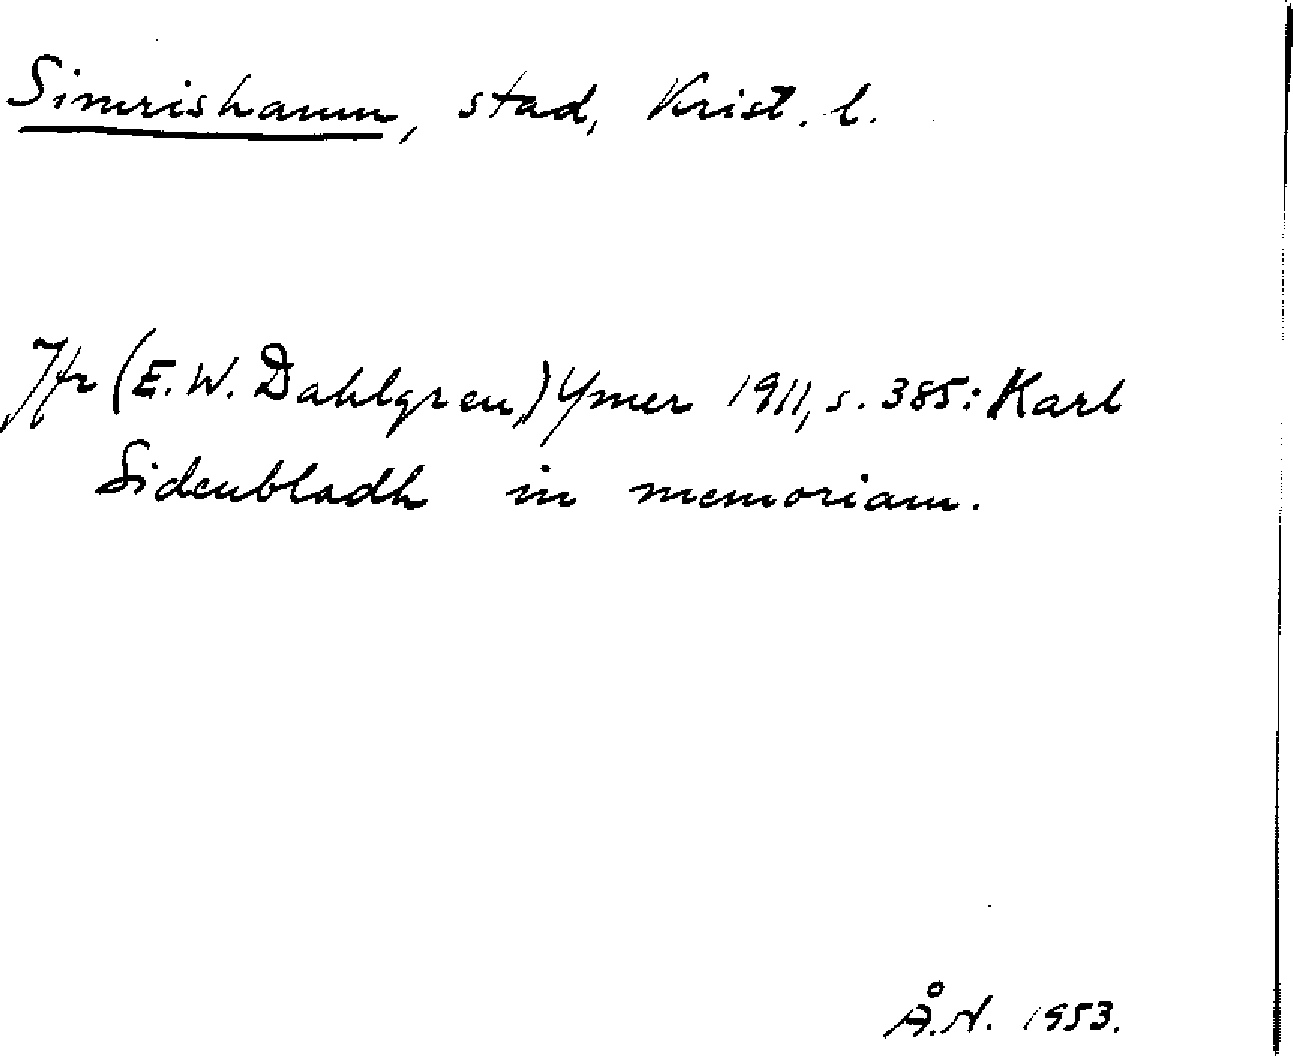 Simrishamn, stad, Krist. l.
Jfr (E. W. Dahlgren) Ymer 1911, s. 385: Karl
Sidenbladh in memoriam.
Å.N. 1953.